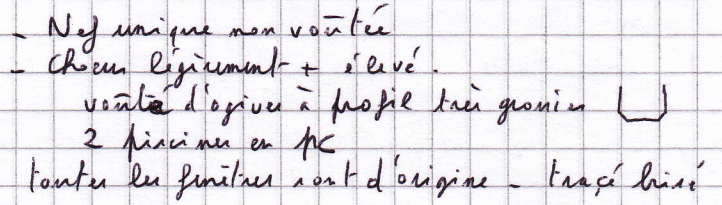 - Nef unique non voûtée
- Choeur légèrement + élevé.
voûté d'ogives à profil très grossier
2 piscines en pc
toutes les fenêtres sont d'origine - tracé brisé